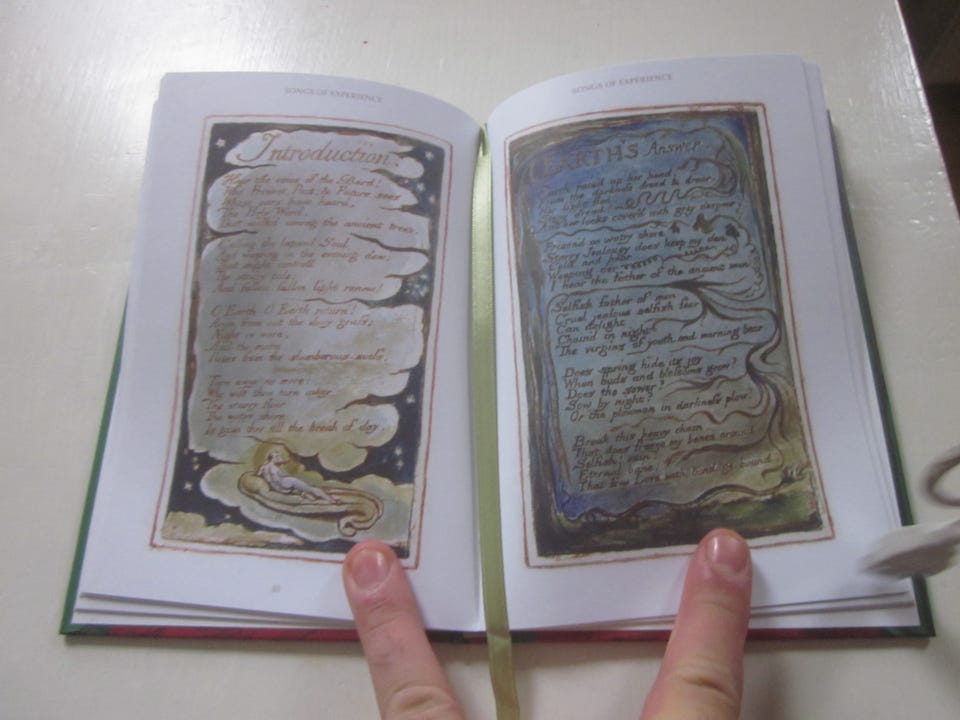 SONGS OF EXPERIENCE
Introduction.
Hear the voice of the Bard!
Who Present, Past, & Future sees
Whose ears have heard,
The Holy Word,
That walk'd among the ancient trees.
Calling the lapsed Soul
And weeping in the evening dew;
That might controll
The starry pole;
And fallen fallen light renew!
O Earth O Earth return!
Arise from out the dewy grass;
Night is worn,
And the morn
Rises from the slumberous mass.
Turn away no more:
Why wilt thou turn away
The starry floor
The watry shore
Is giv'n thee till the break of day.
SONGS OF EXPERIENCE
EARTH'S Answer.
Earth rais'd up her head,
From the darkness dread & drear.
Her light fled:
Stony dread!
And her locks cover'd with grey despair.
Prison'd on watry shore
Starry Jealousy does keep my den
Cold and hoar
Weeping o'er
I hear the Father of the ancient men
Selfish father of men
Cruel jealous selfish fear
Can delight
Chain'd in night
The virgins of youth and morning bear
Does spring hide its joy
When buds and blossoms grow?
Does the sower?
Sow by night?
Or the plowman in darkness plow?
Break this heavy chain
That does freeze my bones around
Selfish! vain!
Eternal bane!
That free Love with bondage bound.